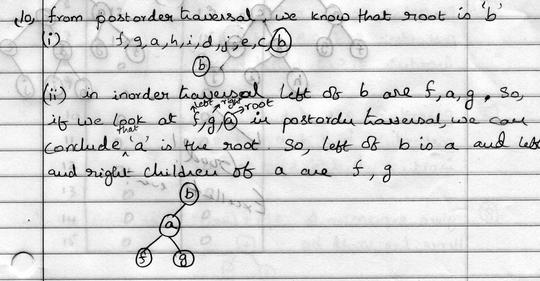 10, from postorder traversal, we know that root is 'b'
(i) f, g, a, h, i, d, j, e, c, b
b
(ii) in inorder traversal left of b are f, a, g. So,
left right root
if we look at f, g, a in postorder traversal, we can
conclude that 'a' is the root. So, left of b is a and left
and right children of a are f, g
b
a
f g